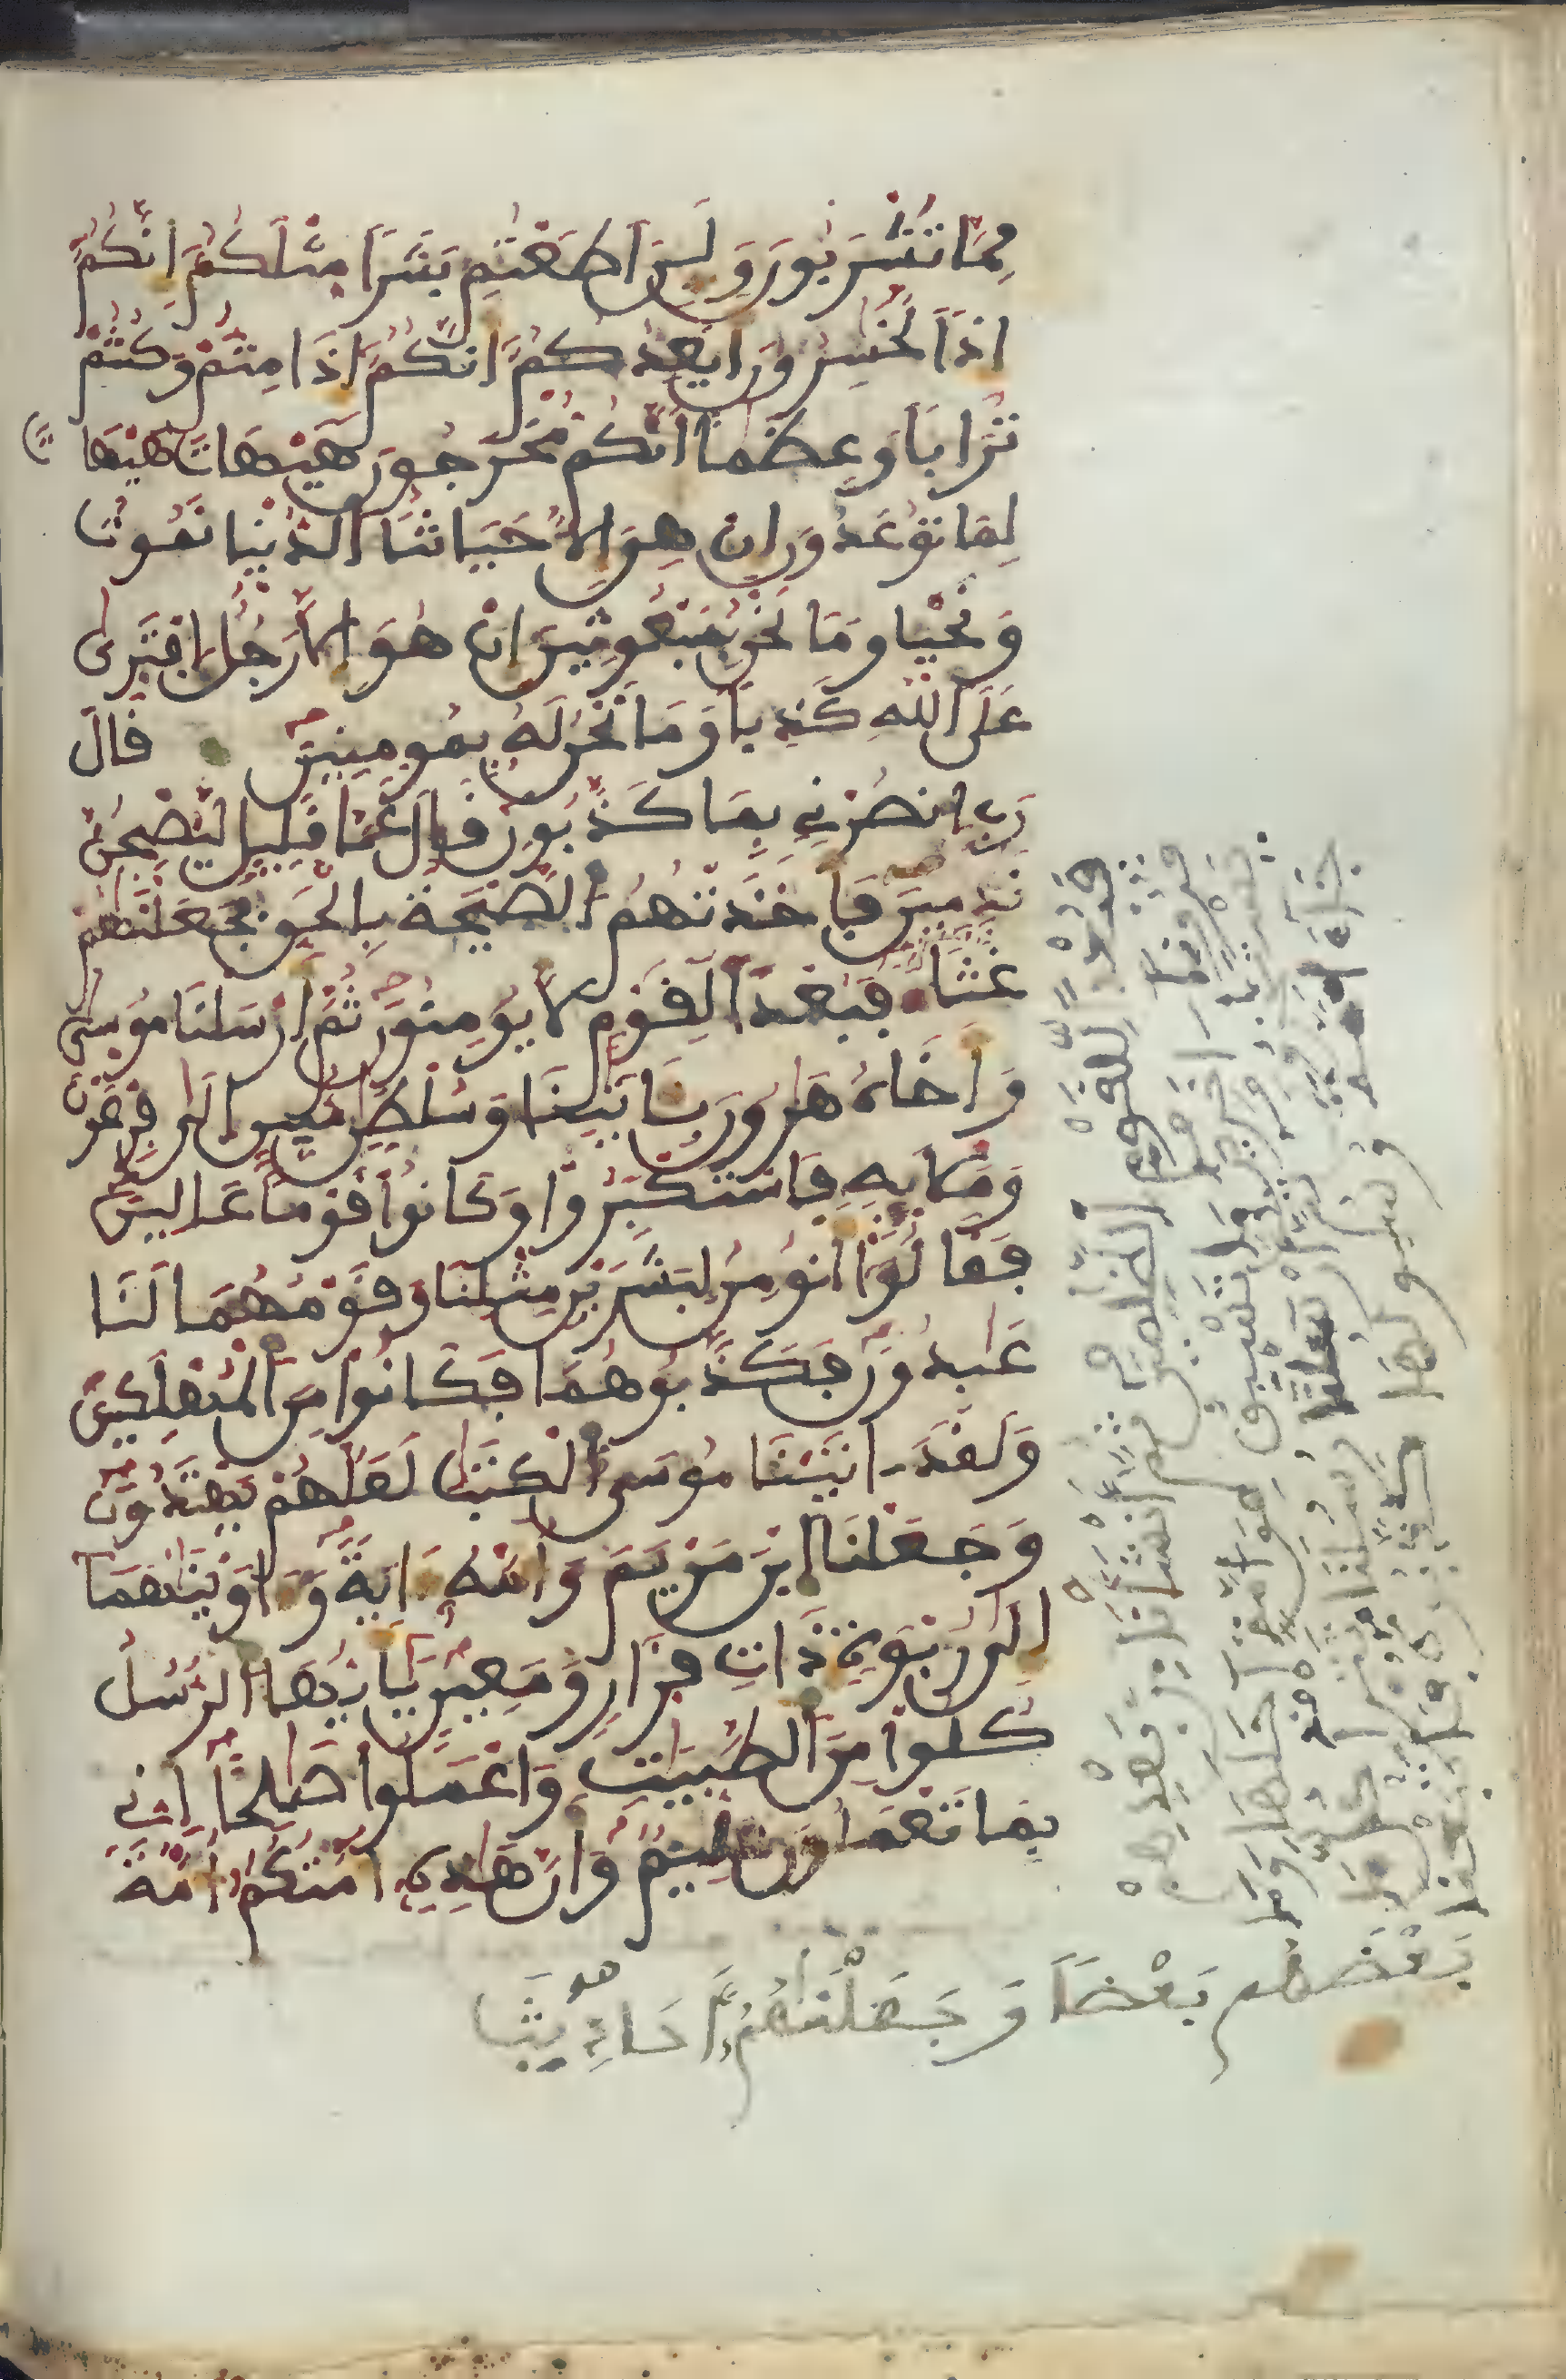 مِمَّا تَشْرَبُونَ وَلَئِنَ اَطَعْتُم بَشَرًا مِّثْلَكُمُۥ إِنَّكُمُۥ
إِذًا لَّخَٰسِرُونَ أَيَعِدُكُمُۥ أَنَّكُمُۥ إِذَا مِتُّمْ وَكُنتُمْ
تُرَابًا وَعِظَٰمًا اَنَّكُم مُّخْرَجُونَ هَيْهَاتَ هَيْهَاتَ
لِمَا تُوعَدُونَ إِنْ هِىَ إِلَّا حَيَاتُنَا الدُّنْيَا نَمُوتُ
وَنَحْيَا وَمَا نَحْنُ بِمَبْعُوثِينَ إِنْ هُوَ إِلَّا رَجُلٌ اِفْتَرَىٰ
عَلَى اللَّهِ كَذِبًا وَمَا نَحْنُ لَهُۥ بِمُومِنِينَ قَالَ
رَبِّ اِنصُرْنِے بِمَا كَذَّبُونِ قَالَ عَمَّا قَلِيلٍ لَّيُصْبِحُنَّ
نَٰدِمِينَ فَأَخَذَتْهُمُ الصَّيْحَةُ بِالْحَقِّ فَجَعَلْنَٰهُمْ
غُثَآءً فَبُعْدًا لِّلْقَوْمِ لَّا يُومِنُونَ ثُمَّ أَرْسَلْنَا مُوسَىٰ
وَأَخَاهُ هَٰرُونَ بِـَٔايَٰتِنَا وَسُلْطَٰنٍ مُّبِينٍ اِلَىٰ فِرْعَوْنَ
وَمَلَإِيْهِۦ فَاسْتَكْبَرُوا وَكَانُوا قَوْمًا عَالِينَ
فَقَالُوا أَنُومِنُ لِبَشَرَيْنِ مِثْلِنَا وَقَوْمُهُمَا لَنَا
عَٰبِدُونَ فَكَذَّبُوهُمَا فَكَانُوا مِنَ الْمُهْلَكِينَ
وَلَقَدَ اٰتَيْنَا مُوسَى الْكِتَٰبَ لَعَلَّهُمْ يَهْتَدُونَ
وَجَعَلْنَا اَبْنَ مَرْيَمَ وَأُمَّهُۥ ءَايَةً وَءَاوَيْنَٰهُمَا
إِلَىٰ رُبْوَةٍ ذَاتِ قَرَارٍ وَمَعِينٍ يَٰأَيُّهَا الرُّسُلُ
كُلُوا مِنَ الطَّيِّبَٰتِ وَاعْمَلُوا صَٰلِحًا اِنِّے
بِمَا تَعْمَلُونَ عَلِيمٌ وَأَنَّ هَٰذِهِۦ أُمَّتُكُمُۥ أُمَّةً
فَبُعْدًا لِّلْقَوْمِ الظَّٰلِمِينَ ثُمَّ أَنشَأْنَا مِنۢ بَعْدِهِمْ
قُرُونًا اٰخَرِينَ مَا تَسْبِقُ مِنُ اُمَّةٍ اَجَلَهَا وَمَا
يَسْتَٰخِرُونَ ثُمَّ أَرْسَلْنَا رُسُلَنَا تَتْرًا كُلَّ مَا
جَآءَ اُمَّةً رَّسُولُهَا كَذَّبُوهُ فَأَتْبَعْنَا
بَعْضَهُم بَعْضًا وَجَعَلْنَٰهُمُۥ أَحَادِيثَ